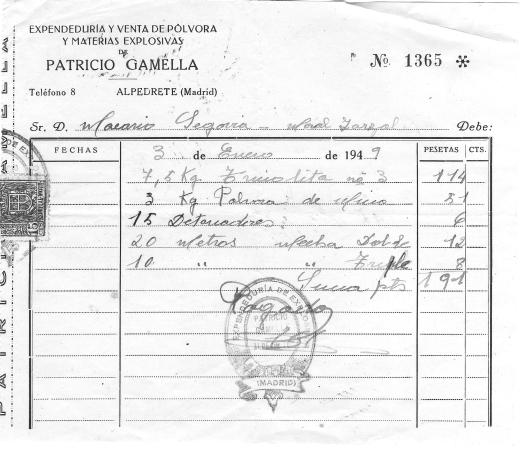 EXPENDEDURÍA Y VENTA DE PÓLVORA
Y MATERIAS EXPLOSIVAS
DE
PATRICIO GAMELLA
Teléfono 8 ALPEDRETE (Madrid)
No. 1365 *
Sr. D. Macario Segovia Debe:
FECHAS 3 de Enero de 1949 PESETAS CTS.
7,5 Kg nº 3 114
3 Kg Polvora de Mina 51
15 Detonadores 6
20 Metros Mecha Doble 12
10 " " Triple 8
Suma pts 191
Pagado
EXPENDEDURÍA DE
PATRICIO
(MADRID)
15
PATRICIO GAMELLA